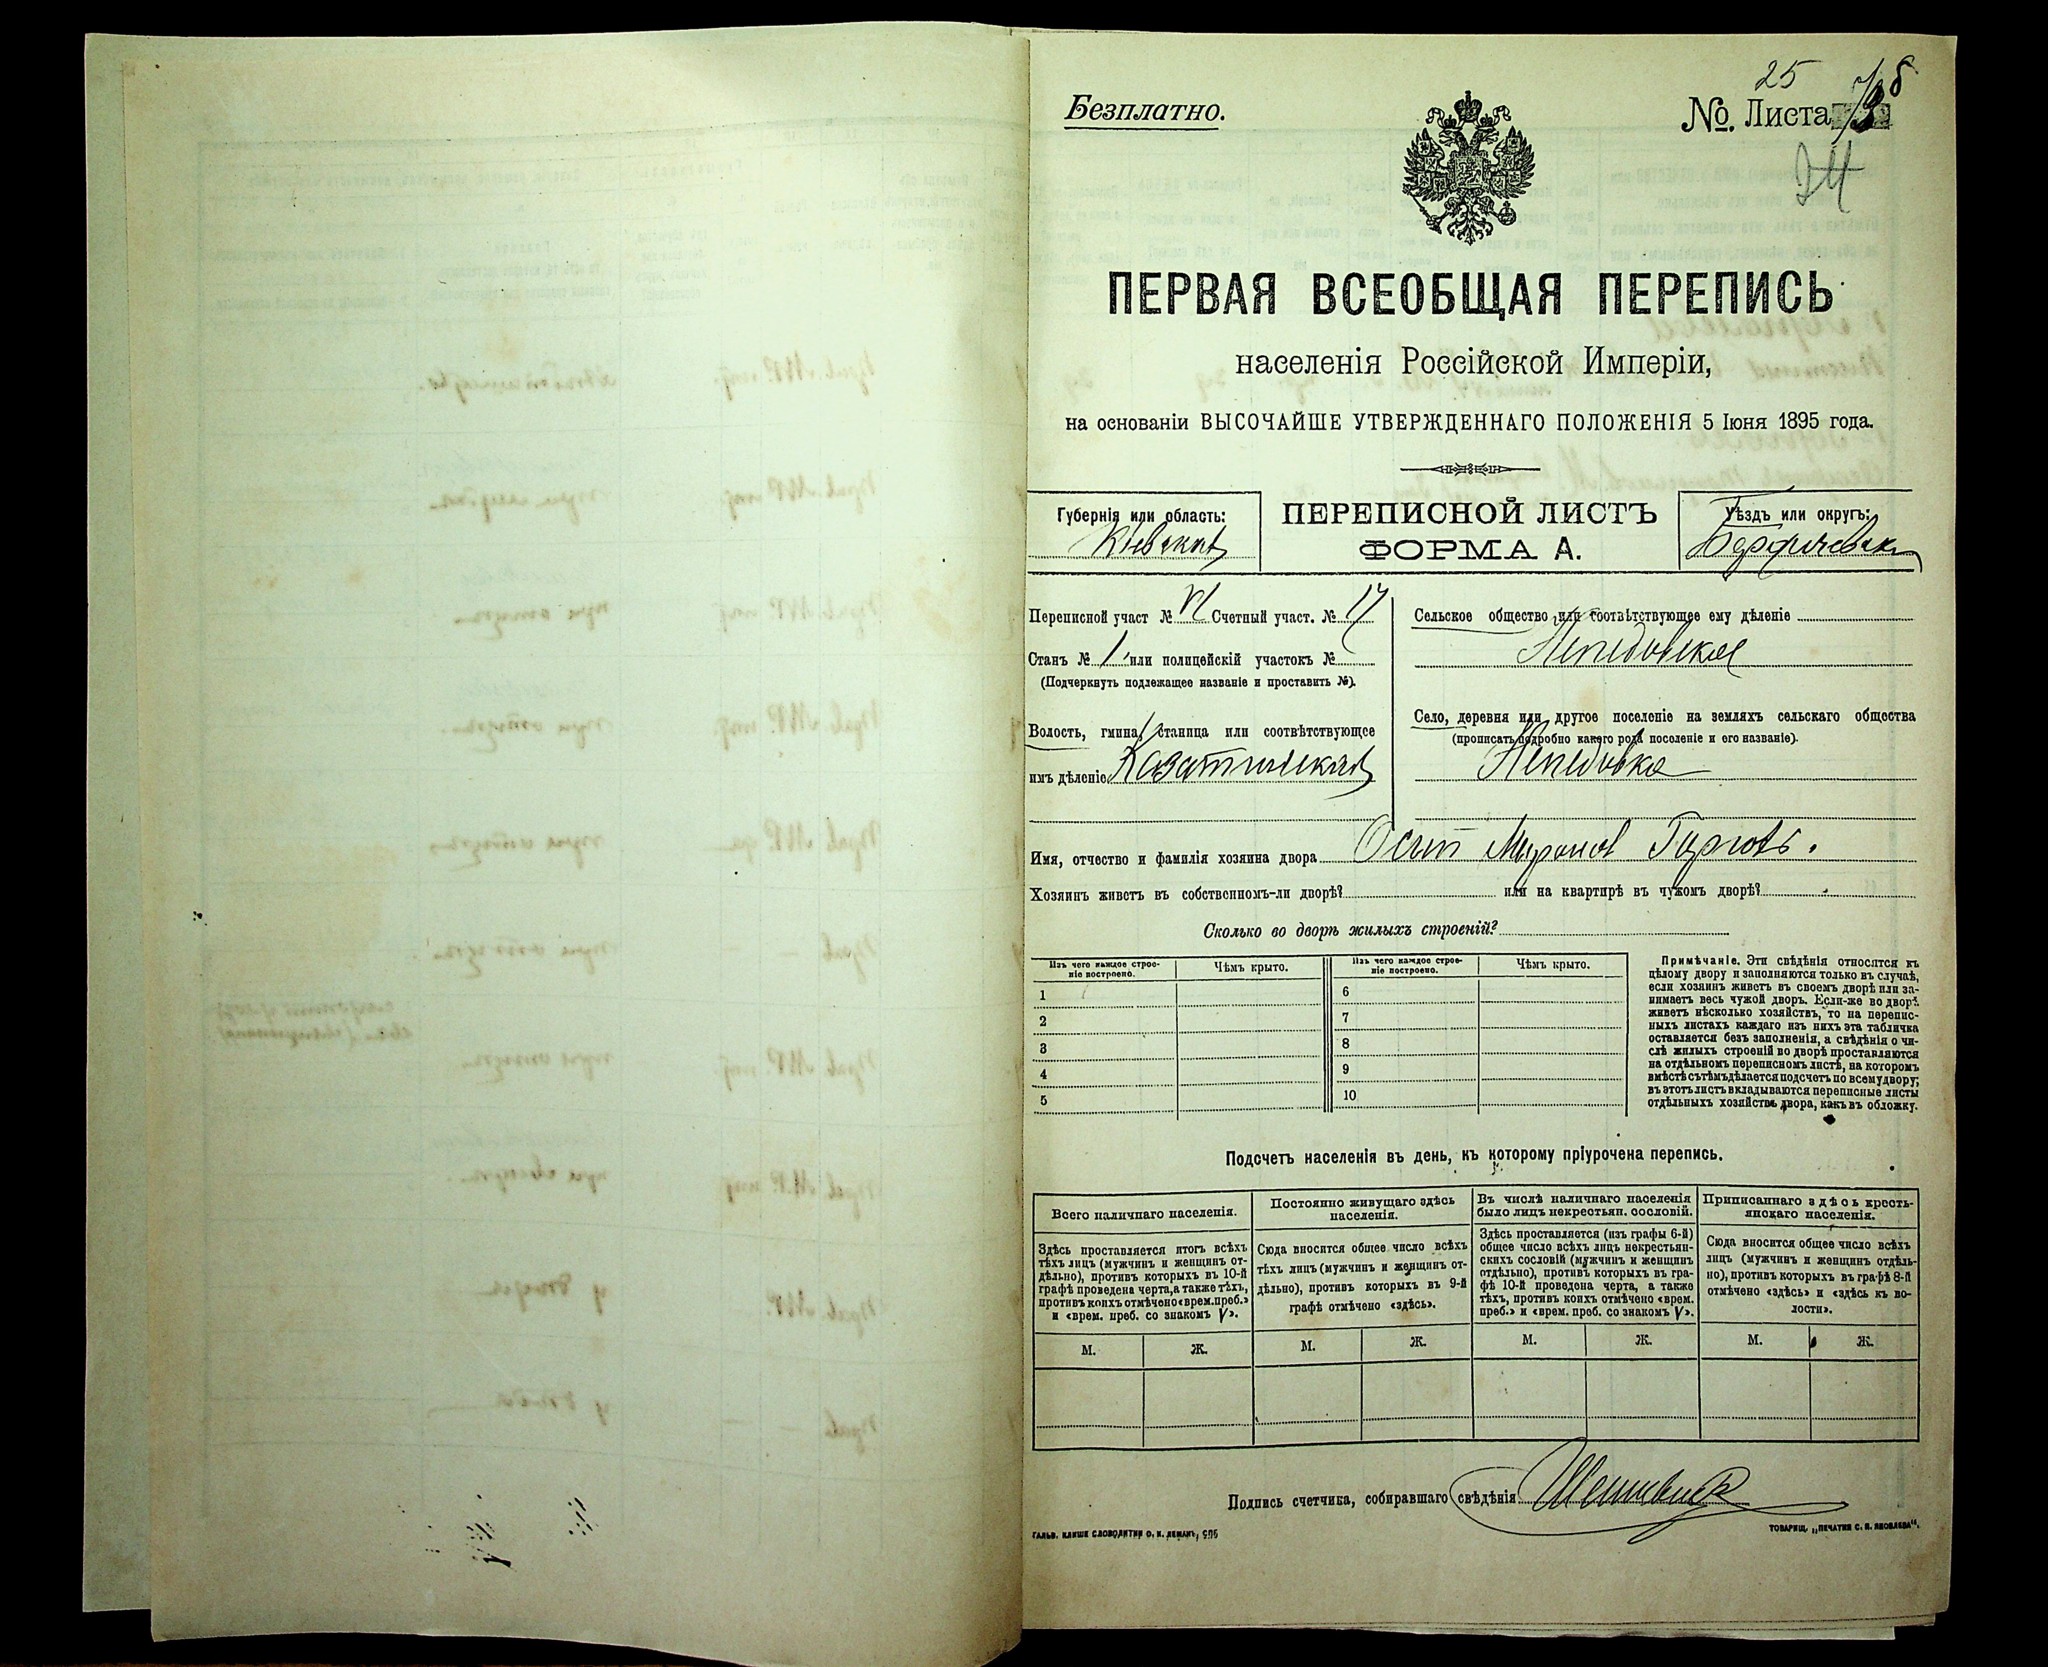 25
Безплатно.
№. Листа
ПЕРВАЯ ВСЕОБЩАЯ ПЕРЕПИСЬ
населенія Россійской Имперіи,
на основаніи ВЫСОЧАЙШЕ УТВЕРЖДЕННАГО ПОЛОЖЕНІЯ 5 Іюня 1895 года.
Губернія или область:
Кіевская
ПЕРЕПИСНОЙ ЛИСТЪ
ФОРМА А.
Уѣздъ или округъ:
Бердичевск
Переписной участ № VI Счетный участ. № 17
Станъ № 1 или полицейскій участокъ №
(Подчеркнуть подлежащее названіе и проставить №).
Волость, гмина, станица или соотвѣтствующее
имъ дѣленіе Казатинская
Сельское общество или соотвѣтствующее ему дѣленіе
Непедовское
Село, деревня или другое поселеніе на земляхъ сельскаго общества
(прописать подробно какого рода поселеніе и его названіе).
Непедовка
Имя, отчество и фамилія хозяина двора Осип Миронов
Хозяинъ живетъ въ собственномъ-ли дворѣ? или на квартирѣ въ чужомъ дворѣ?
Сколько во дворѣ жилыхъ строеній?
Изъ чего каждое строе-
ніе построено.
Чѣмъ крыто.
Изъ чего каждое строе-
ніе построено.
Чѣмъ крыто.
1
2
3
4
5
6
7
8
9
10
Примѣчаніе. Эти свѣдѣнія относятся къ
цѣлому двору и заполняются только въ случаѣ,
если хозяинъ живетъ въ своемъ дворѣ или за-
нимаетъ весь чужой дворъ. Если-же во дворѣ
живетъ нѣсколько хозяйствъ, то на перепис-
ныхъ листахъ каждаго изъ нихъ эта табличка
оставляется безъ заполненія, а свѣдѣнія о чи-
слѣ жилыхъ строеній во дворѣ проставляются
на отдѣльномъ переписномъ листѣ, на которомъ
вмѣстѣ съ тѣмъ дѣлается подсчетъ по всему двору;
въ этотъ листъ вкладываются переписные листы
отдѣльныхъ хозяйствъ двора, какъ въ обложку.
Подсчетъ населенія въ день, къ которому пріурочена перепись.
Всего наличнаго населенія.
Здѣсь проставляется итогъ всѣхъ
тѣхъ лицъ (мужчинъ и женщинъ от-
дѣльно), противъ которыхъ въ 10-й
графѣ проведена черта, а также тѣхъ,
противъ коихъ отмѣчено «врем. преб.»
и «врем. преб. со знакомъ V».
М. Ж.
Постоянно живущаго здѣсь
населенія.
Сюда вносится общее число всѣхъ
тѣхъ лицъ (мужчинъ и женщинъ от-
дѣльно), противъ которыхъ въ 9-й
графѣ отмѣчено «здѣсь».
М. Ж.
Въ числѣ наличнаго населенія
было лицъ некрестьян. сословій.
Здѣсь проставляется (изъ графы 6-й)
общее число всѣхъ лицъ некрестьян-
скихъ сословій (мужчинъ и женщинъ
отдѣльно), противъ которыхъ въ гра-
фѣ 10-й проведена черта, а также
тѣхъ, противъ коихъ отмѣчено «врем.
преб.» и «врем. преб. со знакомъ V».
М. Ж.
Приписаннаго здѣсь кресть-
янскаго населенія.
Сюда вносится общее число всѣхъ
лицъ (мужчинъ и женщинъ отдѣль-
но), противъ которыхъ въ графѣ 8-й
отмѣчено «здѣсь» и «здѣсь къ во-
лости».
М. Ж.
Подпись счетчика, собиравшаго свѣдѣнія
ГАЛЬВ. КЛИШЕ СЛОВОЛИТНИ О. И. ЛЕМАНЪ, СПБ
ТОВАРИЩ. „ПЕЧАТНЯ С. П. ЯКОВЛЕВА“.